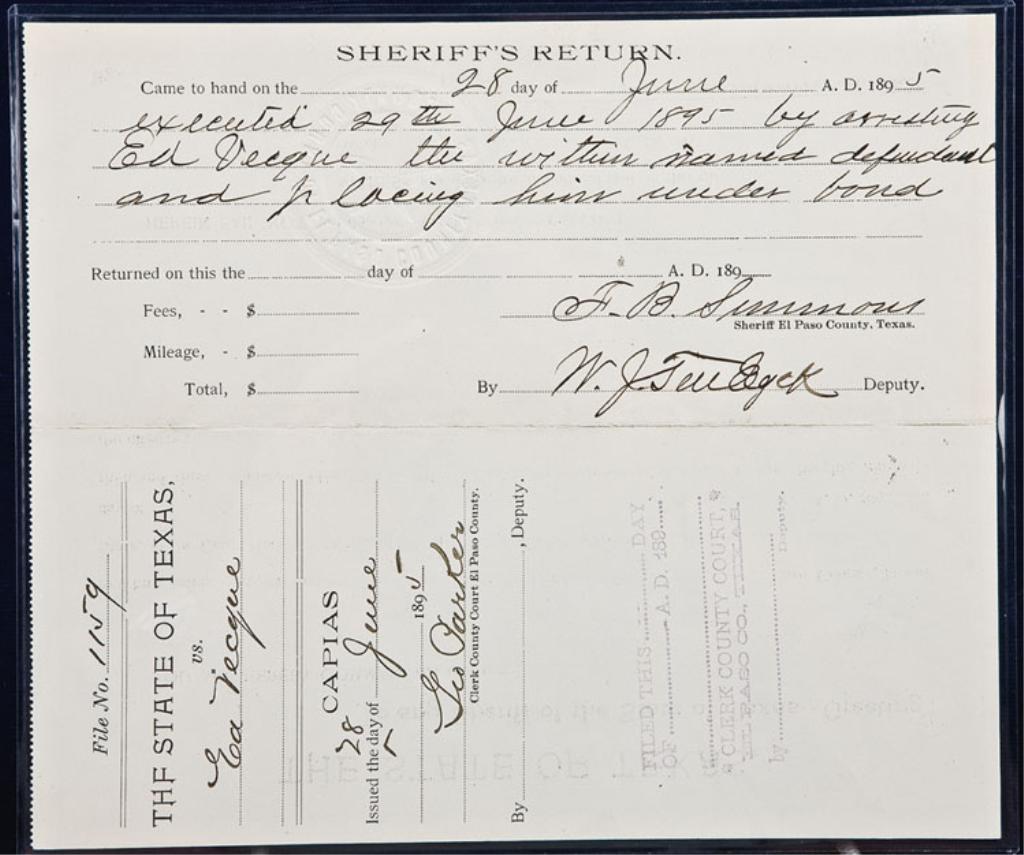 SHERIFF'S RETURN.
Came to hand on the 28 day of June A. D. 1895
executed 29th June 1895 by arresting
Ed Vecque the within named defendant
and placing him under bond
Returned on this the day of A. D. 189
Fees, - - $
F. B. Simmons
Sheriff El Paso County, Texas.
Mileage, - $
Total, $
By W. J. Ten Eyck Deputy.
File No. 1159
THE STATE OF TEXAS,
vs.
Ed Vecque
CAPIAS
28
Issued the day of June
1895
Geo Parker
Clerk County Court El Paso County.
By , Deputy.
FILED THIS DAY
OF A. D. 189
CLERK COUNTY COURT,
EL PASO CO., TEXAS.
by Deputy.